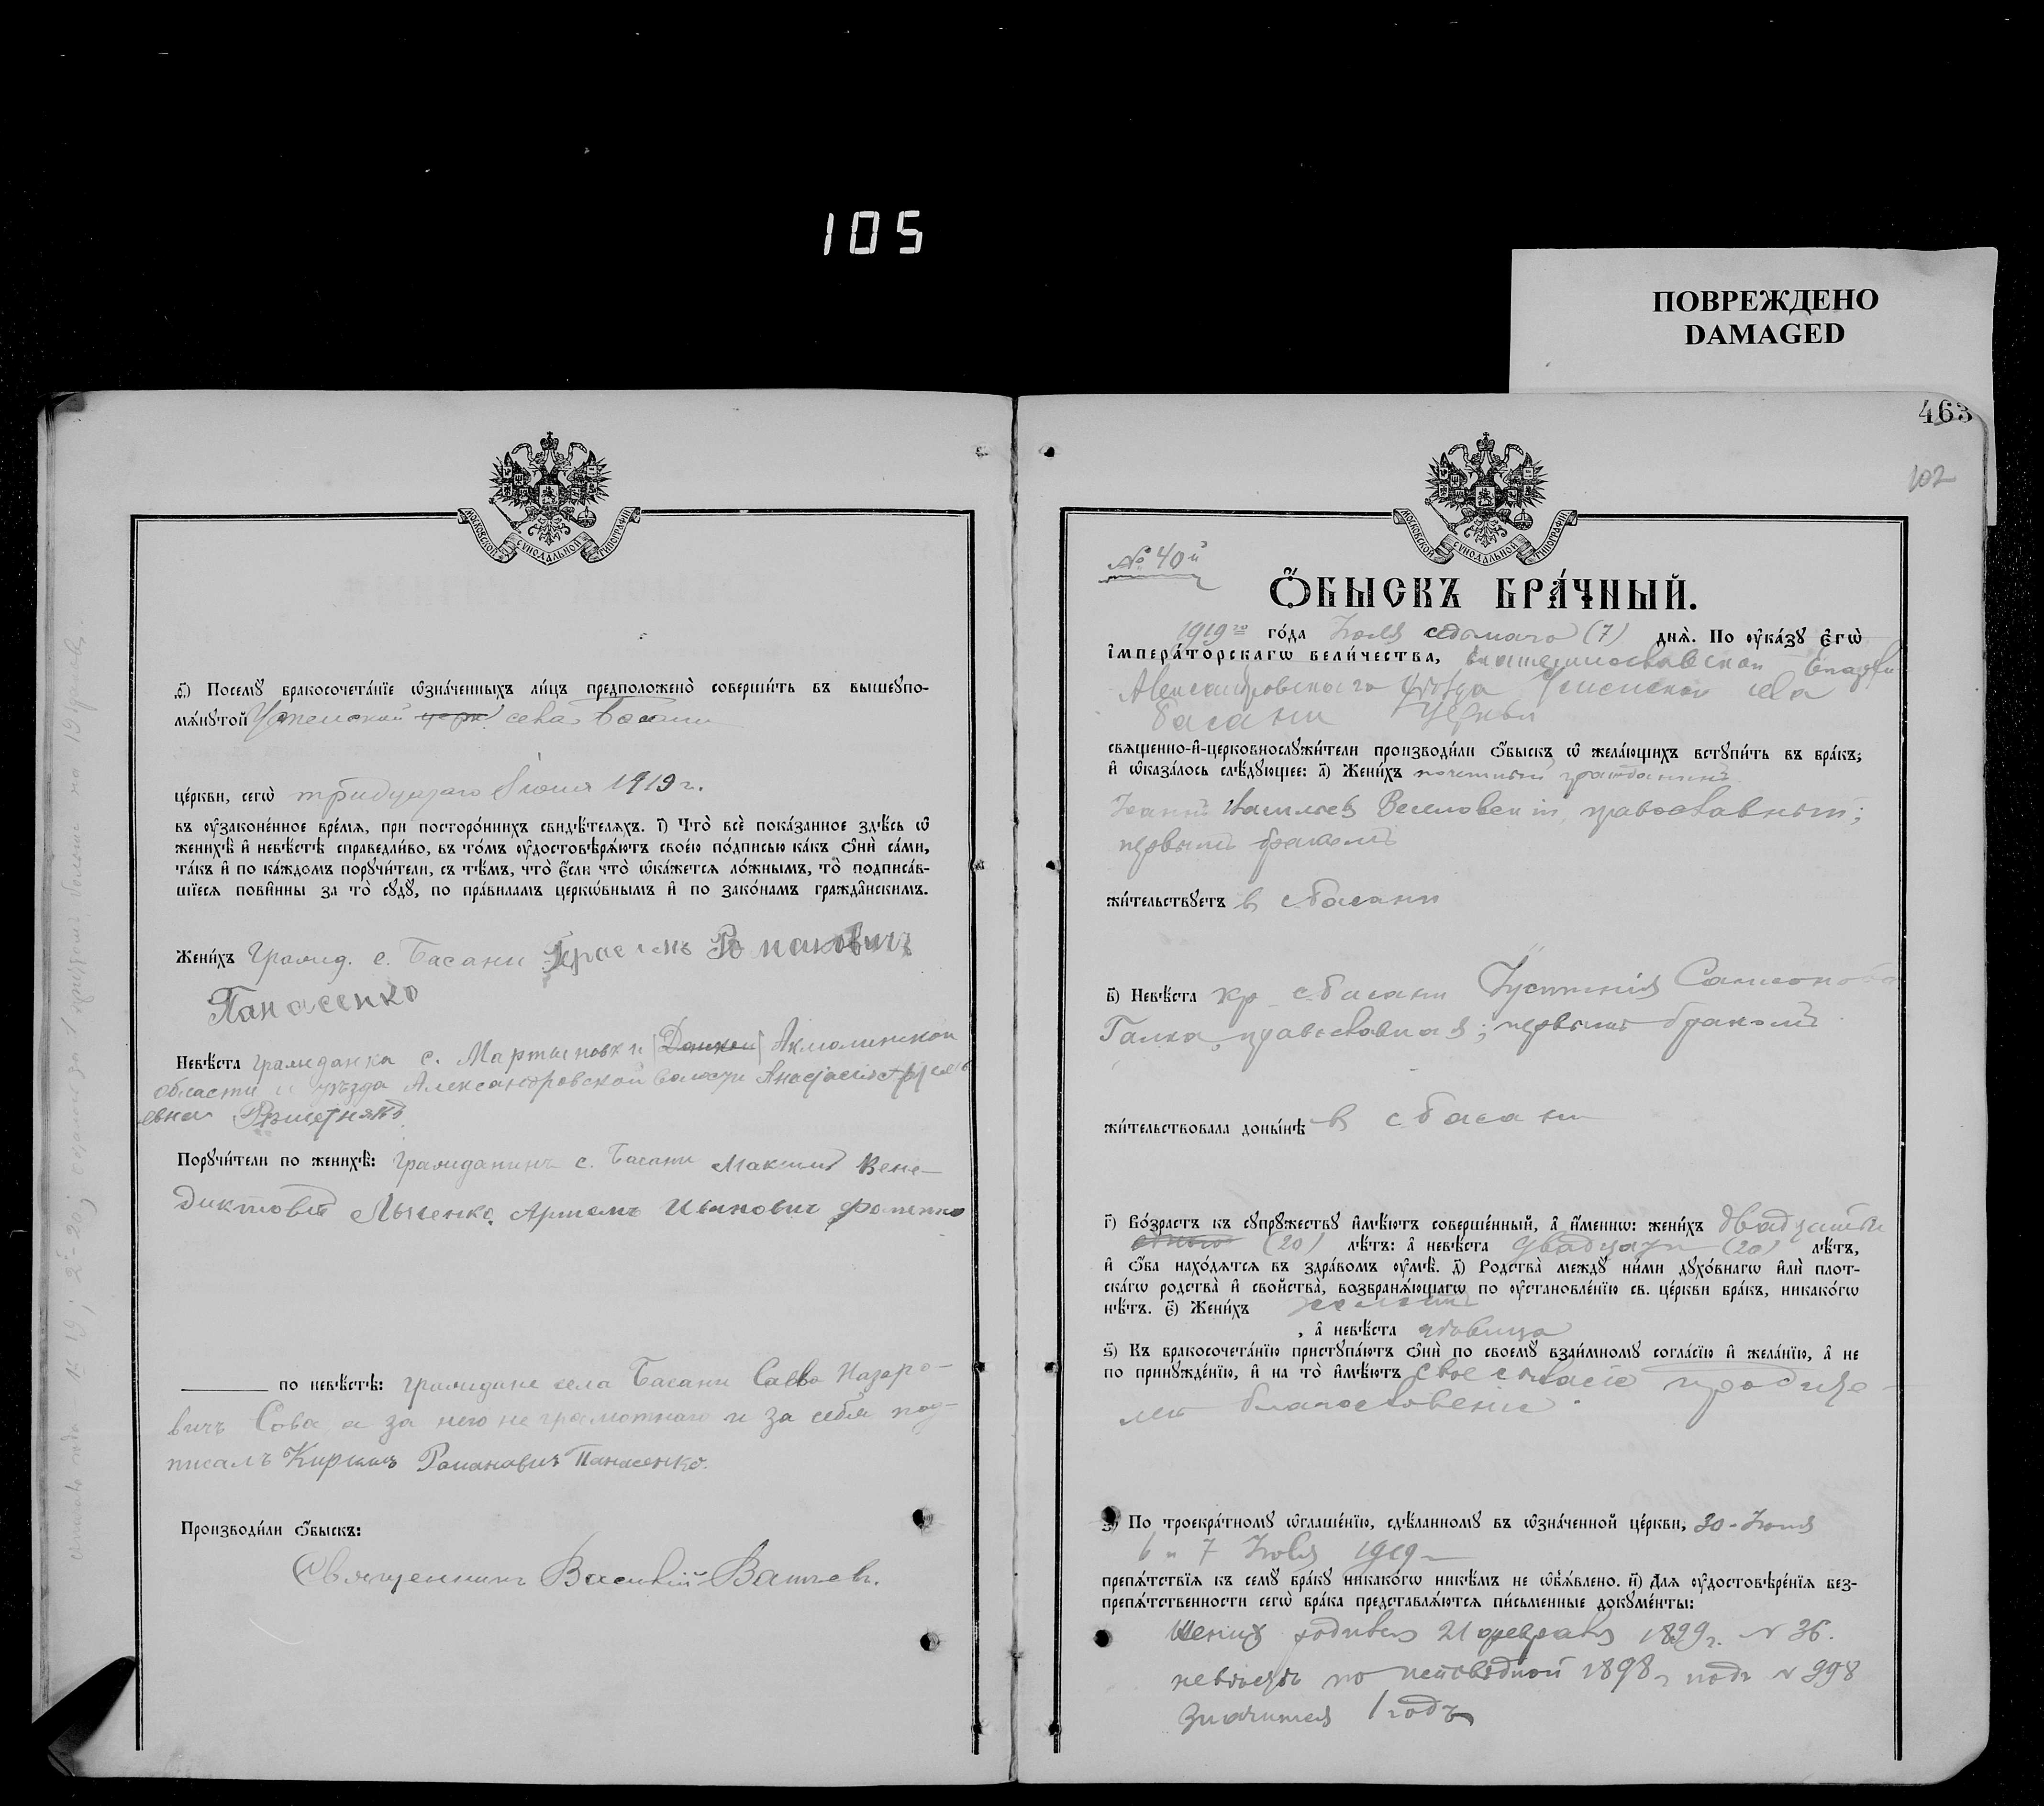 105
ПОВРЕЖДЕНО
DAMAGED
МОСКОВСКОЙ СУНОДАЛЬНОЙ ТИПОГРАФІИ
ѳ҃) Посемꙋ бракосочета́нїе ѡ҆зна́ченныхъ ли́цъ предположено̀ соверши́ть въ вышеупо-
мѧ́нутой Успенской церк. села Басани
це́ркви, сегѡ̀ тридцатаго Іюня 1919 г.
въ ᲂу҆законе́нное вре́мѧ, при посторо́ннихъ свидѣ́телѧхъ. і҃) Что̀ всѐ пока́занное здѣ́сь ѡ҆
женихѣ̀ и҆ невѣ́стѣ справедли́во, въ то́мъ ᲂу҆достовѣрѧ́ютъ свое́ю по́дписью ка́къ ѻ҆нѝ са́ми,
та́къ и҆ по ка́ждомъ поручи́тели, съ тѣ́мъ, что̀ є҆́сли что̀ ѡ҆ка́жетсѧ ло́жнымъ, то̀ подписа́в-
шїесѧ пови́нны за то̀ сꙋдꙋ̀, по пра́виламъ церко́внымъ и҆ по зако́намъ гражда́нскимъ.
Жени́хъ Гражд. с. Басани Герасимъ Романовичъ
Панасенко
Невѣ́ста гражданка с. Мартыновки Акмолинской
области и уѣзда Александровской волости
евна Рѣшетнякъ
Порꙋчи́тели по женихѣ̀: гражданинъ с. Басани Максимъ Вене-
диктовъ Лысенко, Артемъ Ивановичъ Фоменко
по невѣ́стѣ: граждане села Басани Савва Назаро-
вичъ Сова, а за него неграмотнаго и за себя под-
писалъ Кирилъ Романовичъ Панасенко.
Производи́ли ѻ҆́быскъ:
Священникъ Василій
463
102
МОСКОВСКОЙ СУНОДАЛЬНОЙ ТИПОГРАФІИ
№ 40й
Ѻ҆́БЫСКЪ БРА́ЧНЫЙ.
1919го го́да Іюля седьмаго (7) днѧ̀. По ᲂу҆ка́зꙋ є҆гѡ̀
і҆мпера́торскагѡ вели́чества, Екатеринославской Епархіи
Александровскаго уѣзда Успенской села
Басани Церкви
свѧщенно-и҆-церковнослꙋжи́тели производи́ли ѻ҆́быскъ ѡ҆ жела́ющихъ встꙋпи́ть въ бра́къ;
и҆ ѡ҆каза́лось слѣ́дꙋющее: а҃) Жени́хъ почетный гражданинъ
Іоаннъ Васильевъ Веселовскій, православный;
первымъ бракомъ
жи́тельствꙋетъ в с. Басани
в҃) Невѣ́ста кр. с. Басани Іустинія Самсонова
Галка, православная; первымъ бракомъ
жи́тельствовала доны́нѣ в с. Басани
г҃) Во́зрастъ къ сꙋпрꙋ́жествꙋ и҆мѣ́ютъ соверше́нный, а҆ и҆́меннѡ: жени́хъ двадцати
(20) лѣ́тъ: а҆ невѣ́ста двадцати (20) лѣ́тъ,
и҆ ѻ҆́ба нахо́дѧтсѧ въ здра́вомъ ᲂу҆мѣ̀. д҃) Родства̀ междꙋ̀ ни́ми дꙋхо́внагѡ и҆лѝ плот-
ска́гѡ родства̀ и҆ сво́йства̀, возбранѧ́ющагѡ по ᲂу҆становле́нїю св. це́ркви бра́къ, никако́гѡ
нѣ́тъ. є҃) Жени́хъ холостъ
, а҆ невѣ́ста дѣвица
ѕ҃) Къ бракосочета́нїю пристꙋпа́ютъ ѻ҆нѝ по своемꙋ̀ взаи́мномꙋ согла́сїю и҆ жела́нїю, а҆ не
по принꙋжде́нїю, и҆ на то̀ и҆мѣ́ютъ свое согласіе родите-
лей благословеніе.
з҃) По троекра́тномꙋ ѡ҆глаше́нїю, сдѣ́ланномꙋ въ ѡ҆зна́ченной це́ркви, 30 - Іюня
6 и 7 Іюля 1919
препѧ́тствїѧ къ семꙋ̀ бра́кꙋ никако́гѡ никѣ́мъ не ѡ҆б̾ѧ́влено. и҃) Длѧ ᲂу҆достовѣре́нїѧ без-
препѧ́тственности сегѡ̀ бра́ка представлѧ́ютсѧ пи́сьменные докꙋме́нты:
Жених родився 21 февраля 1899 г. № 36.
невѣста по исповѣдной 1898 г подъ № 998
значится 1 годъ